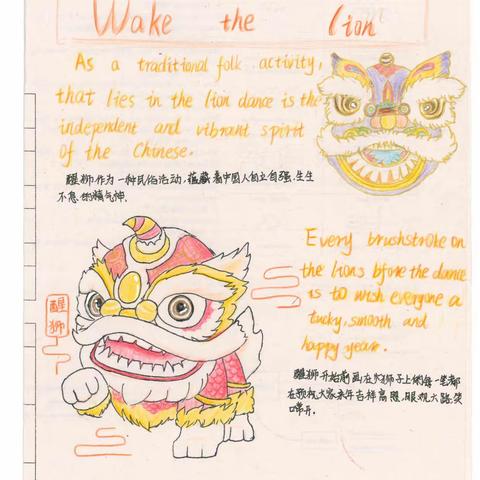 Wake the lion
As a traditional folk activity,
that lies in the lion dance is the
independent and vibrant spirit
of the Chinese.
醒狮作为一种民俗活动,蕴藏着中国人自立自强、生生
不息的精气神.
Every brushstroke on
the lions bfore the dance
is to wish everyone a
lucky, smooth and
happy year.
醒狮
醒狮开始前画在狮子上的每一笔都
在预祝大家来年吉祥高照,眼观六路,笑
口常开.